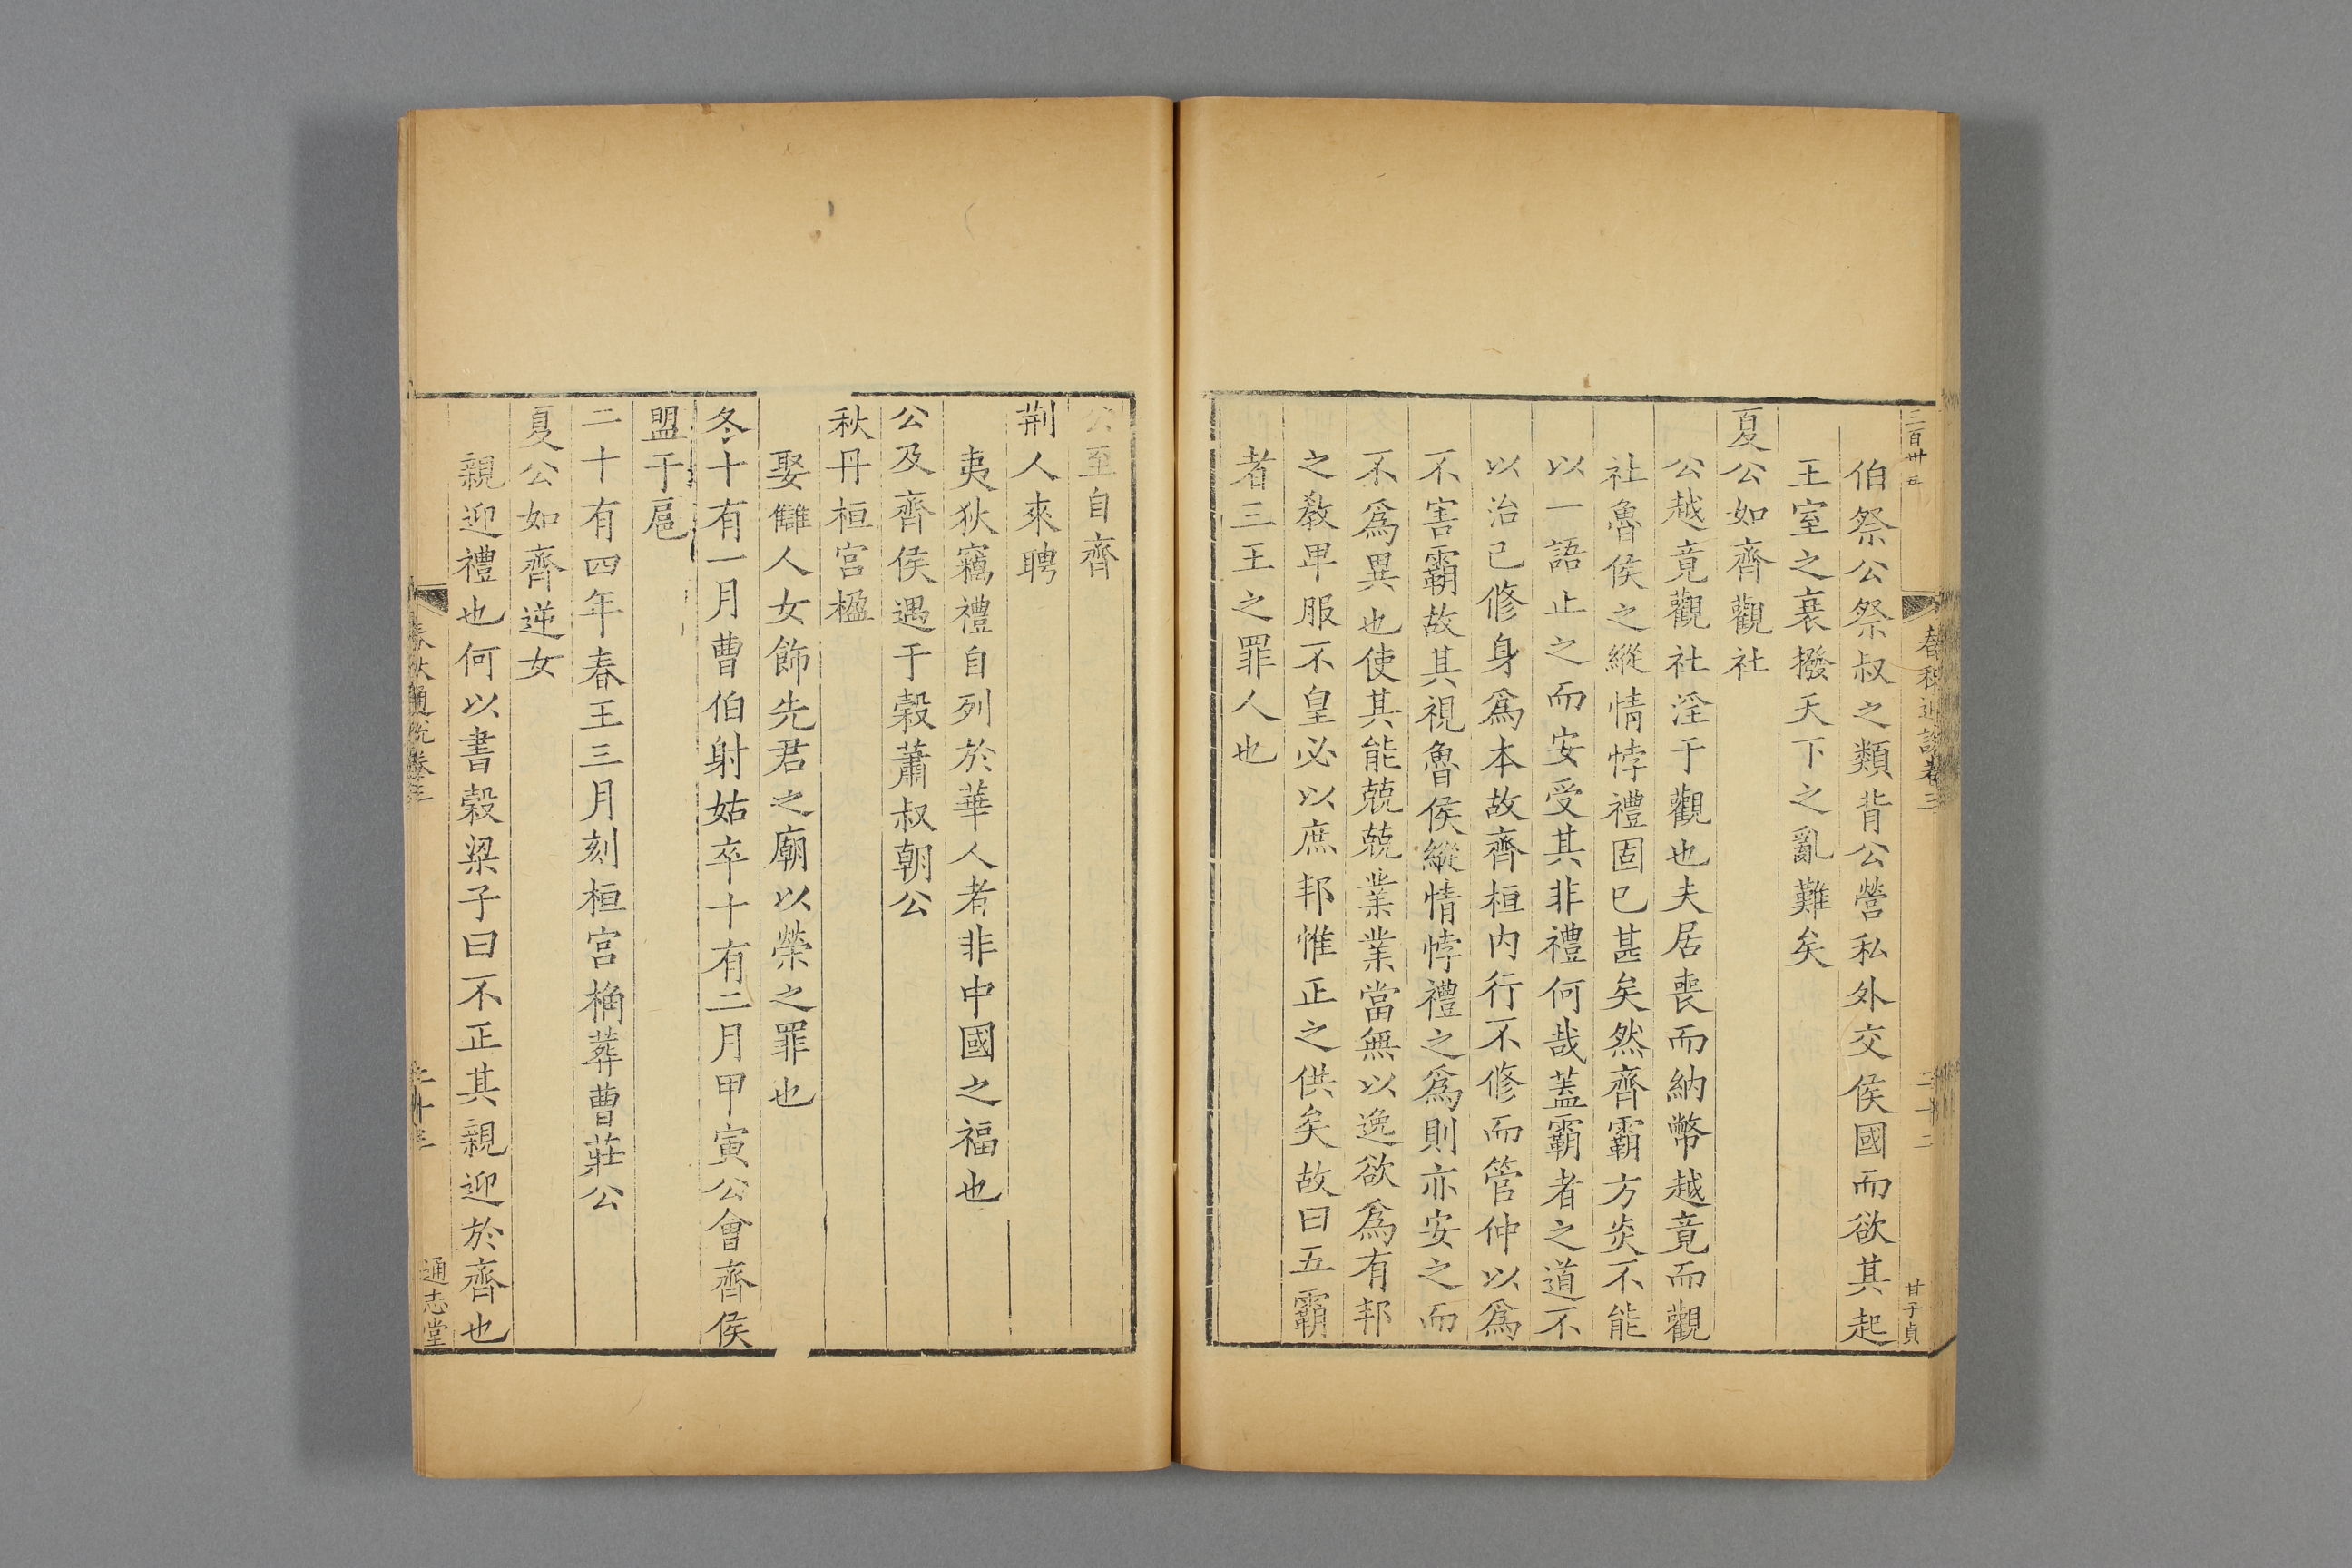 三百卅五
春秋通說卷三
二十二
甘子貞
伯祭公祭叔之類背公營私外交侯國而欲其起
王室之衰撥天下之亂難矣
夏公如齊觀社
公越竟觀社淫于觀也夫居喪而納幣越竟而觀
社魯侯之縱情悖禮固已甚矣然齊霸方炎不能
以一語止之而安受其非禮何哉蓋霸者之道不
以治己修身爲本故齊桓内行不修而管仲以爲
不害霸故其視魯侯縱情悖禮之爲則亦安之而
不爲異也使其能兢兢業業當無以逸欲爲有邦
之敎甲服不皇必以庶邦惟正之供矣故曰五霸
者三王之罪人也
公至自齊
荆人來聘
夷狄竊禮自列於華人者非中國之福也
公及齊侯遇于榖蕭叔朝公
秋丹桓宮楹
娶讎人女飾先君之廟以榮之罪也
冬十有一月曹伯射姑卒十有二月甲寅公會齊侯
盟于扈
二十有四年春王三月刻桓宮桷葬曹莊公
夏公如齊逆女
親迎禮也何以書榖梁子曰不正其親迎於齊也
春秋通說卷三
二十三
通志堂